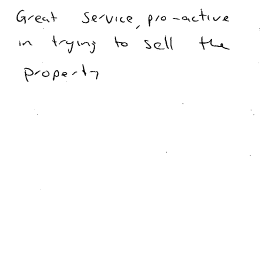 Great service, pro-active
in trying to sell the
property